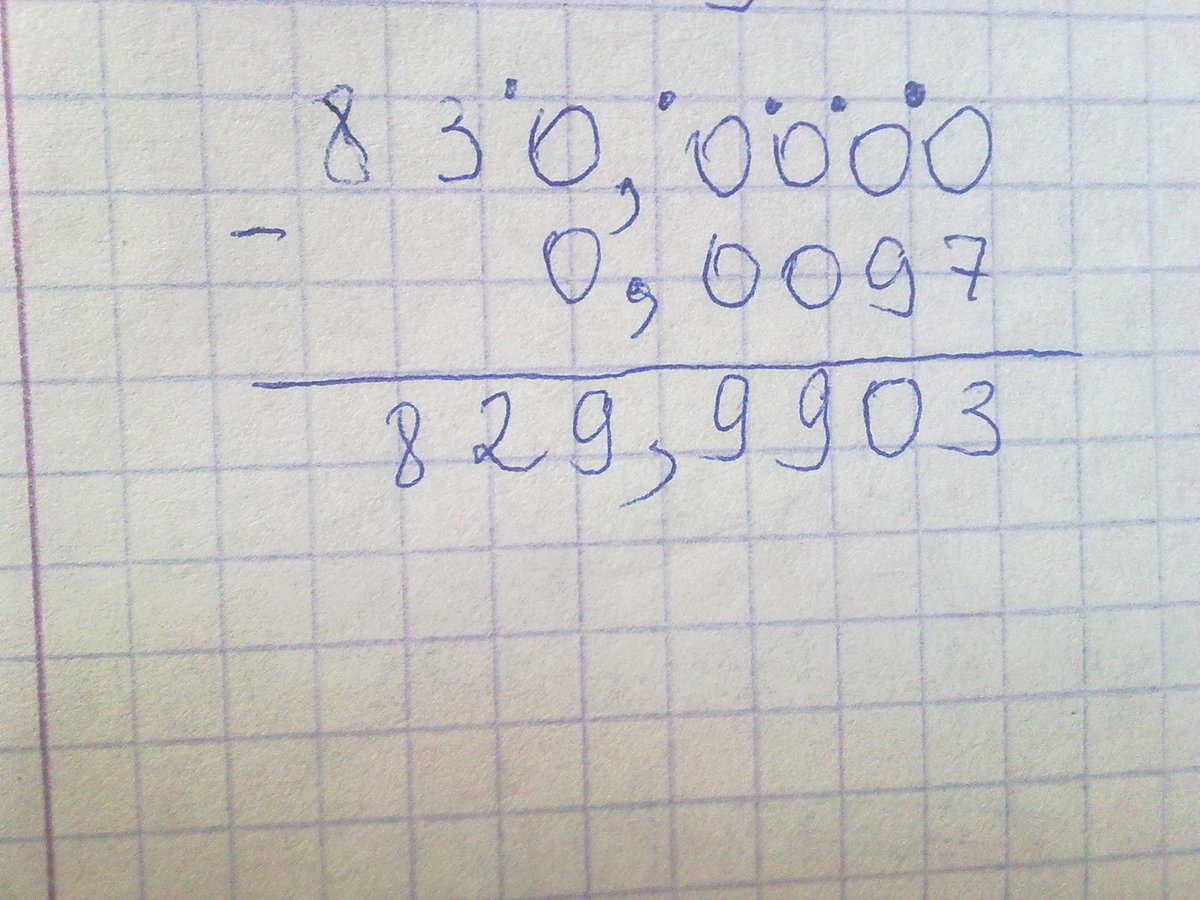 830,0000
−
0,0097
829,9903